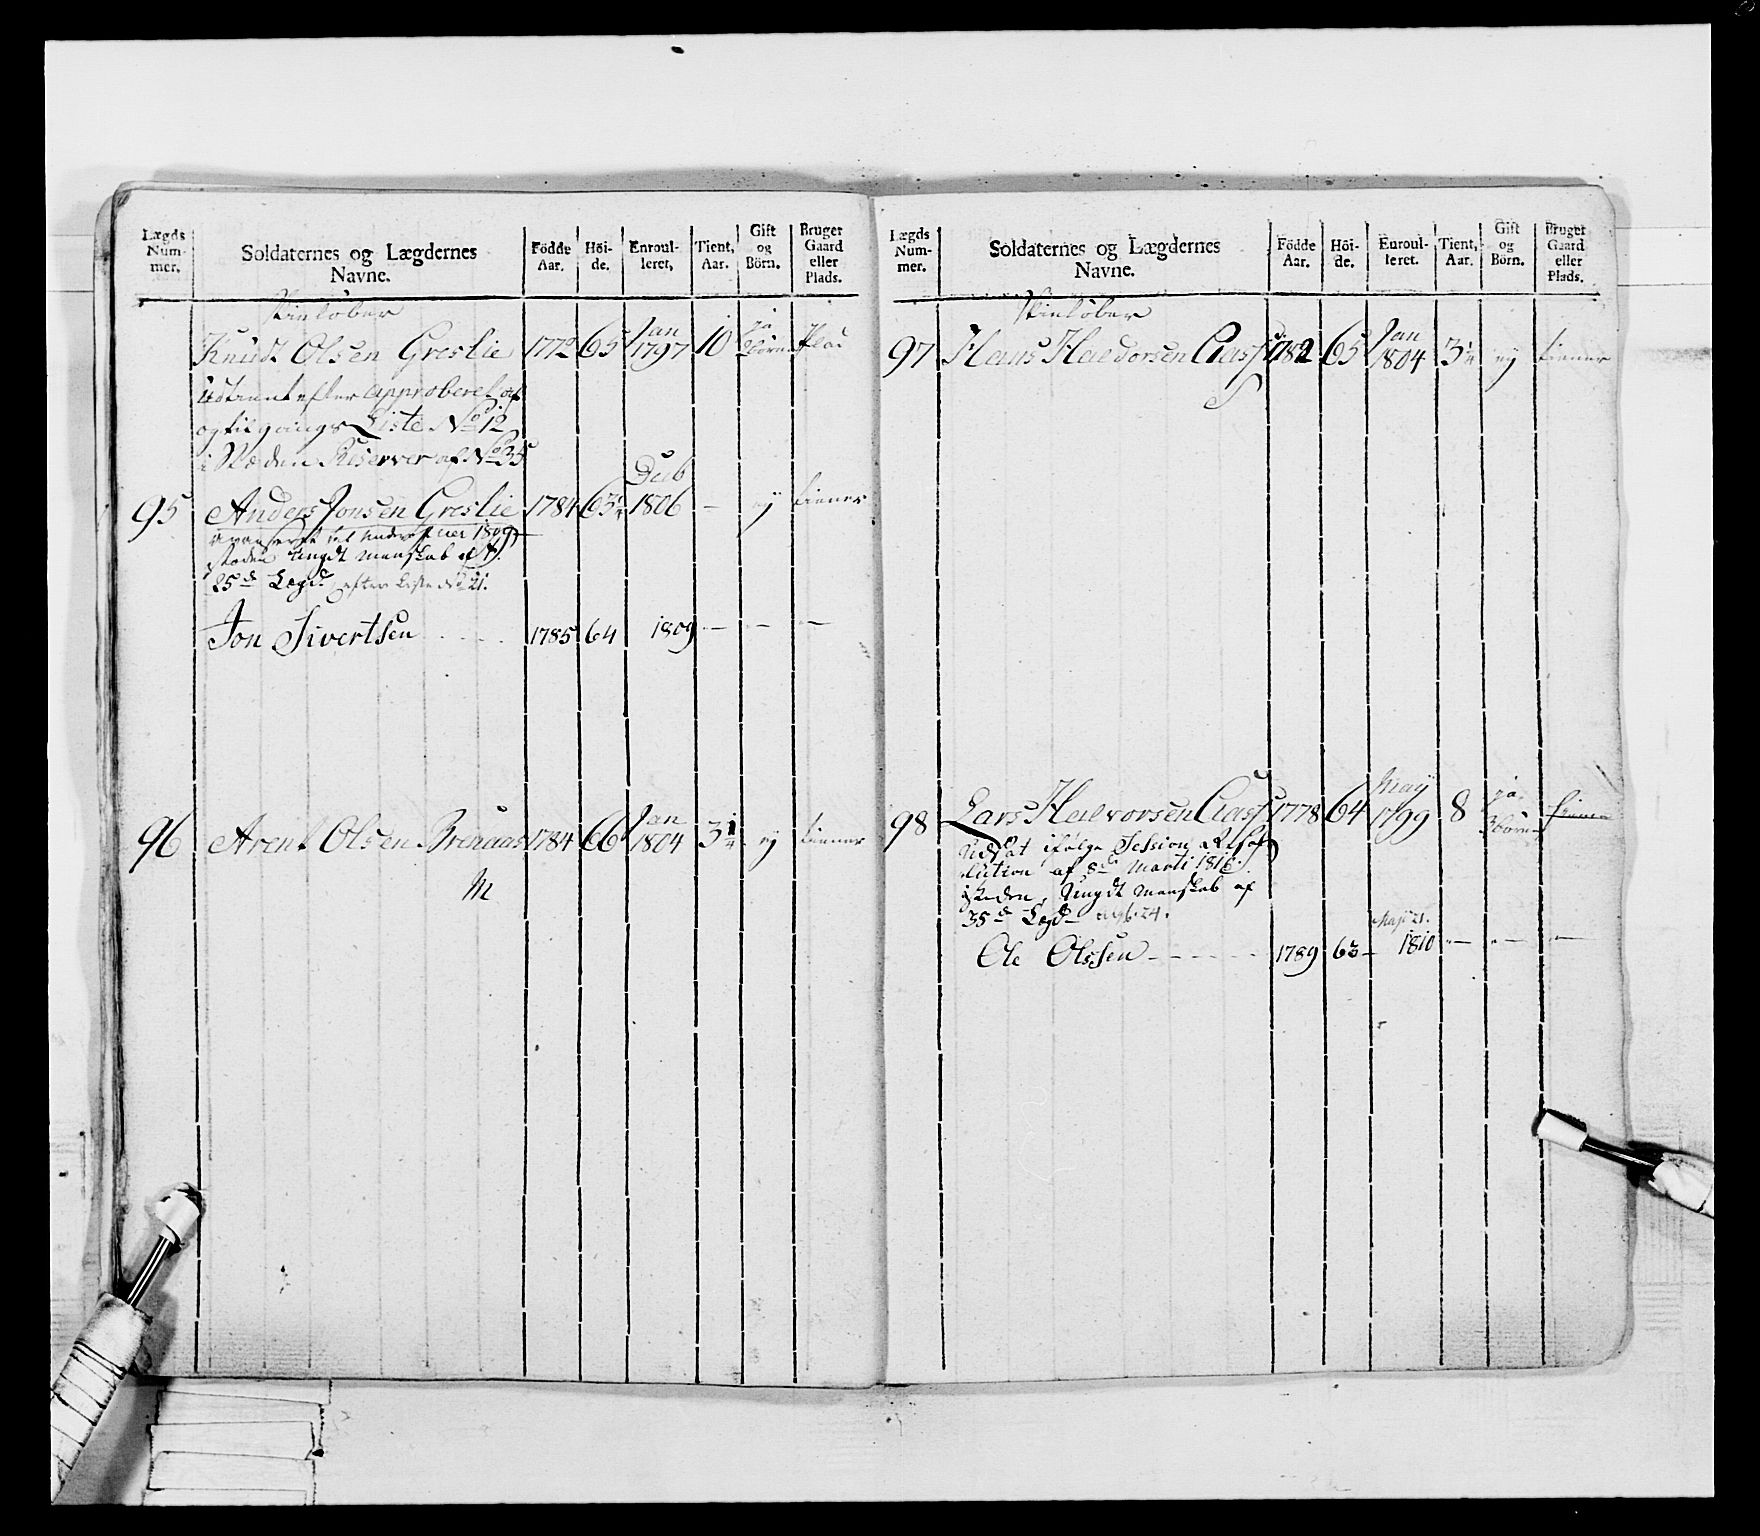 Lægds Num- mer.
Soldaternes og Lægdernes Navne.
Födde Aar.
Höi- de.
Enroul- leret,
Tient, Aar.
Gift og Börn.
Bruger Gaard eller Plads.
Skielöber
Knudt Olsen Greslie 1772 65 Jan 1797 10 ja 2börn Plad
efter approberet af
og tilgangs Liste No 12
i Reserver af No 35
95 Anders Jonsen Greslie 1784 63 1/4 Decb 1806 — ej tiener
1809
ungdt Manskab af
35de Lægd efter Liste No 21.
Jon Sivertsen 1785 64 1809 — — —
96 Arent Olsen Brenaas 1784 66 Jan 1804 3 1/4 ej tiener
M
Lægds Num- mer.
Soldaternes og Lægdernes Navne.
Födde Aar.
Höi- de.
Enroul- leret.
Tient, Aar.
Gift og Börn.
Bruger Gaard eller Plads.
Skielöber
97 Hans Haldorsen Aas 1782 65 Jan 1804 3 1/4 ej tiener
98 Lars Halvorsen Aas 1778 64 May 1799 8 ja 3börn tiener
Udsat ifölge Session Reso
lution af 8de Marti 1810.
isteden, Ungdt Manskab af
35de Lægd No 6.24.
Ole Olssen 1789 63 — Maji 21. 1810 — — —